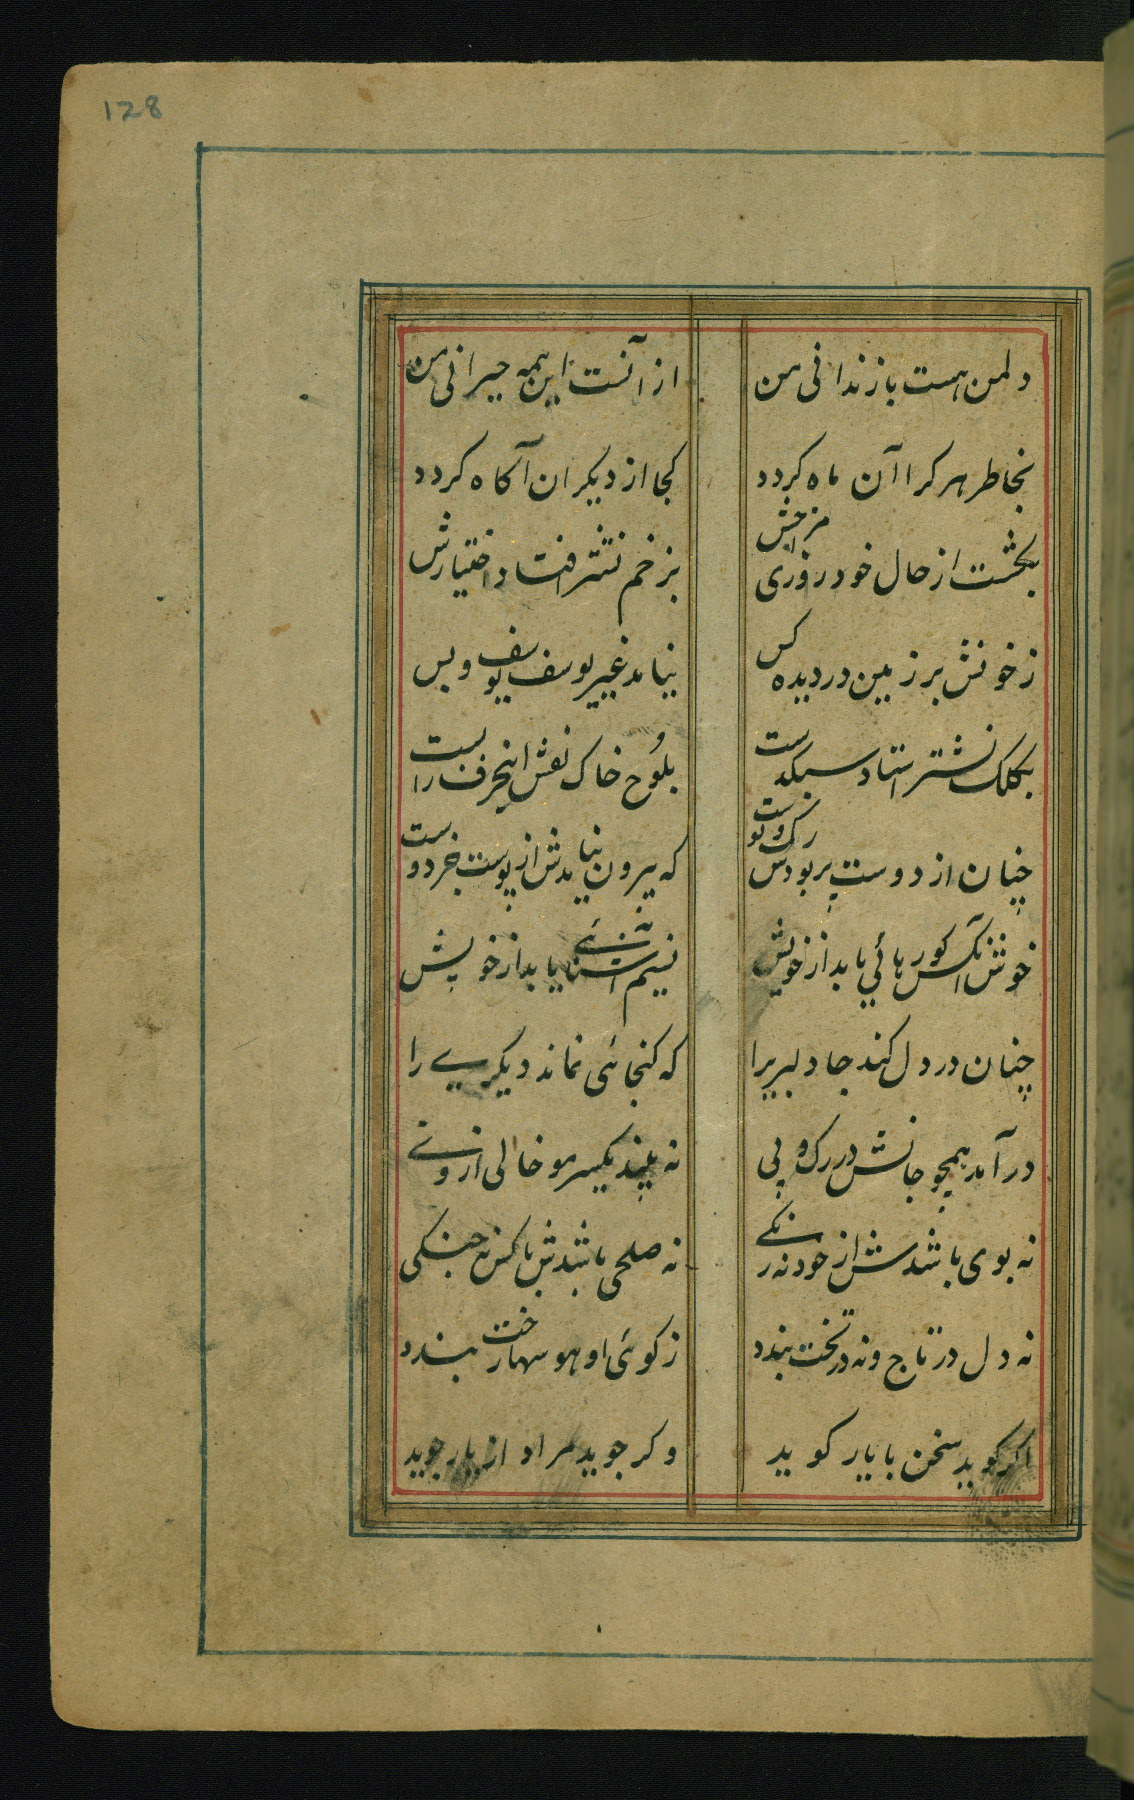 128
دلمن هست با زندانی من
از آنست این همه حیرانی من
بخاطر هر کرا آن ماه کردد
کجا از دیکران آکاه کردد
بکشت از حال خود روزی مزاجش
بزخم نشتر افتاد اختیارش
ز خونش بر زمین در دیده کس
نیامد غیر یوسف یوسف و بس
بکلک نشتر استاد سبکدست
بلوح خاک نقش اینحرف را بست
چنان از دوست پر بودش رک و پوست
که بیرون نیایدش از پوست جز دوست
خوش آنکس کو رهائی یابد از خویش
نسیم آشنائی یابد از خویش
چنان در دل کند جا دلبریرا
که کنجائی نماند دیکریے را
در آمد همچو جانش در رک و پی
نه بیند یکسر مو خالی از وے
نه بوی باشدش از خود نه رنکے
نه صلحی باشدش با کس نه جنکی
نه دل در تاج و نه در تخت بندد
ز کوئی او هوسها رخت بندد
اکر کوید سخن با یار کوید
وکر جوید مراد از یار جوید